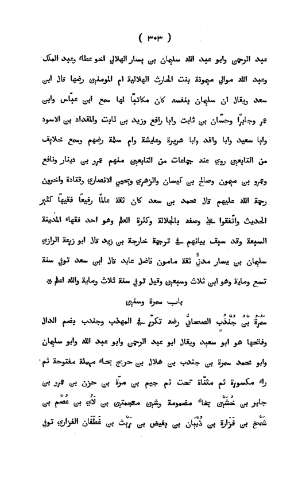 ( ٣٠٣ )
عبد الرحمي وابو عبد الله سليمان بن يسار الهلالي اخو عطاء وعبد الملك
وعبد الله موالي ميمونة بنت الحارث الهلالية ام المومنين رضها قال ابن
سعد ويقال ان سليمان بنفسه كان مكاتبا لها سمع ابن عباس وابن
عمر وجابرا وحسان بن ثابت وابا رافع وزيد بن ثابت والمقداد بن الاسود
وابا سعيد وابا واقد وابا هريرة وعايشة وام سلمة رضهم وسمع خلايف
من التابعين روي عنه جماعات من التابعين منهم عمرو بن دينار ونافع
وعمرو بن ميمون وصالح بن كيسان والزهري ويحيي الانصاري وقتادة واخرون
رحمة الله عليهم قال محمد بن سعد كان ثقة عالما رفيعا فقيها كثير
الحديث واتفقوا علي وصفه بالجلالة وكثرة العلم وهو احد فقهاء المدينة
السبعة وقد سبق بيانهم في ترجمة خارجة بن زيد قال ابو زرعة الرازي
سليمان بن يسار مدني ثقة مامون فاضل عابد قال ابن سعد توفي سنة
تسع وماية وهو ابن ثلاث وسبعين وقيل توفي سنة ثلاث وماية والله اعلم *
باب سمرة وسفري
سمرة بن جندب الصحابي رضه تكرر في المهذب وجندب بضم الدال
وفتحها هو ابو سعيد ويقال ابو عبد الرحمي وابو عبد الله وابو سليمان
وابو محمد سمرة بن جندب بن هلال بن حريج بحاء مهملة مفتوحة ثم
راء مكسورة ثم مثناة تحت ثم جيم بن مرة بن حزن بن عمرو بن
جابر بن خشين بخاء مضمومة وشين معجمتين بن لاي بن عصم بن
شمخ بن فزارة بن ذبيان بن بغيض بن ريث بن غطفان الفزاري توفي